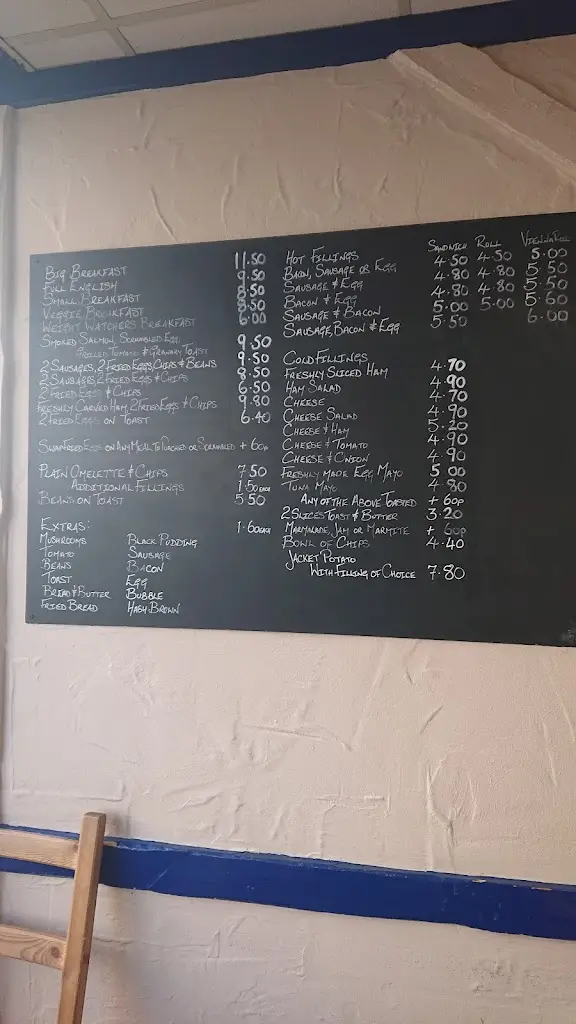 BIG BREAKFAST 11.50
FULL ENGLISH 9.50
SMALL BREAKFAST 8.50
VEGGIE BREAKFAST 8.50
WEIGHT WATCHERS BREAKFAST 8.00
SMOKED SALMON, SCRAMBLED EGG,
GRILLED TOMATO & GRANARY TOAST 9.50
2 SAUSAGES, 2 FRIED EGGS, CHIPS & BEANS 9.50
2 SAUSAGES, 2 FRIED EGGS & CHIPS 8.50
2 FRIED EGGS & CHIPS 6.50
FRESHLY CARVED HAM, 2 FRIED EGGS & CHIPS 9.80
2 FRIED EGGS ON TOAST 6.40
SWAP FRIED EGGS ON ANY MEAL TO POACHED OR SCRAMBLED + 60p
PLAIN OMELETTE & CHIPS 7.50
ADDITIONAL FILLINGS 1.50 EACH
BEANS ON TOAST 5.50
EXTRAS: 1.60 EACH
MUSHROOMS BLACK PUDDING
TOMATO SAUSAGE
BEANS BACON
TOAST EGG
BREAD & BUTTER BUBBLE
FRIED BREAD HASH BROWN
HOT FILLINGS SANDWICH ROLL VIENNA ROLL
BACON, SAUSAGE OR EGG 4.50 4.50 5.00
SAUSAGE & EGG 4.80 4.80 5.50
BACON & EGG 4.80 4.80 5.50
SAUSAGE & BACON 5.00 5.00 5.60
SAUSAGE, BACON & EGG 5.50 6.00
COLD FILLINGS
FRESHLY SLICED HAM 4.70
HAM SALAD 4.90
CHEESE 4.70
CHEESE SALAD 4.90
CHEESE & HAM 5.20
CHEESE & TOMATO 4.90
CHEESE & ONION 4.90
FRESHLY MADE EGG MAYO 5.00
TUNA MAYO 4.80
ANY OF THE ABOVE TOASTED + 60p
2 SLICES TOAST & BUTTER 3.20
MARMALADE, JAM OR MARMITE + 60p
BOWL OF CHIPS 4.40
JACKET POTATO
WITH FILLING OF CHOICE 7.80